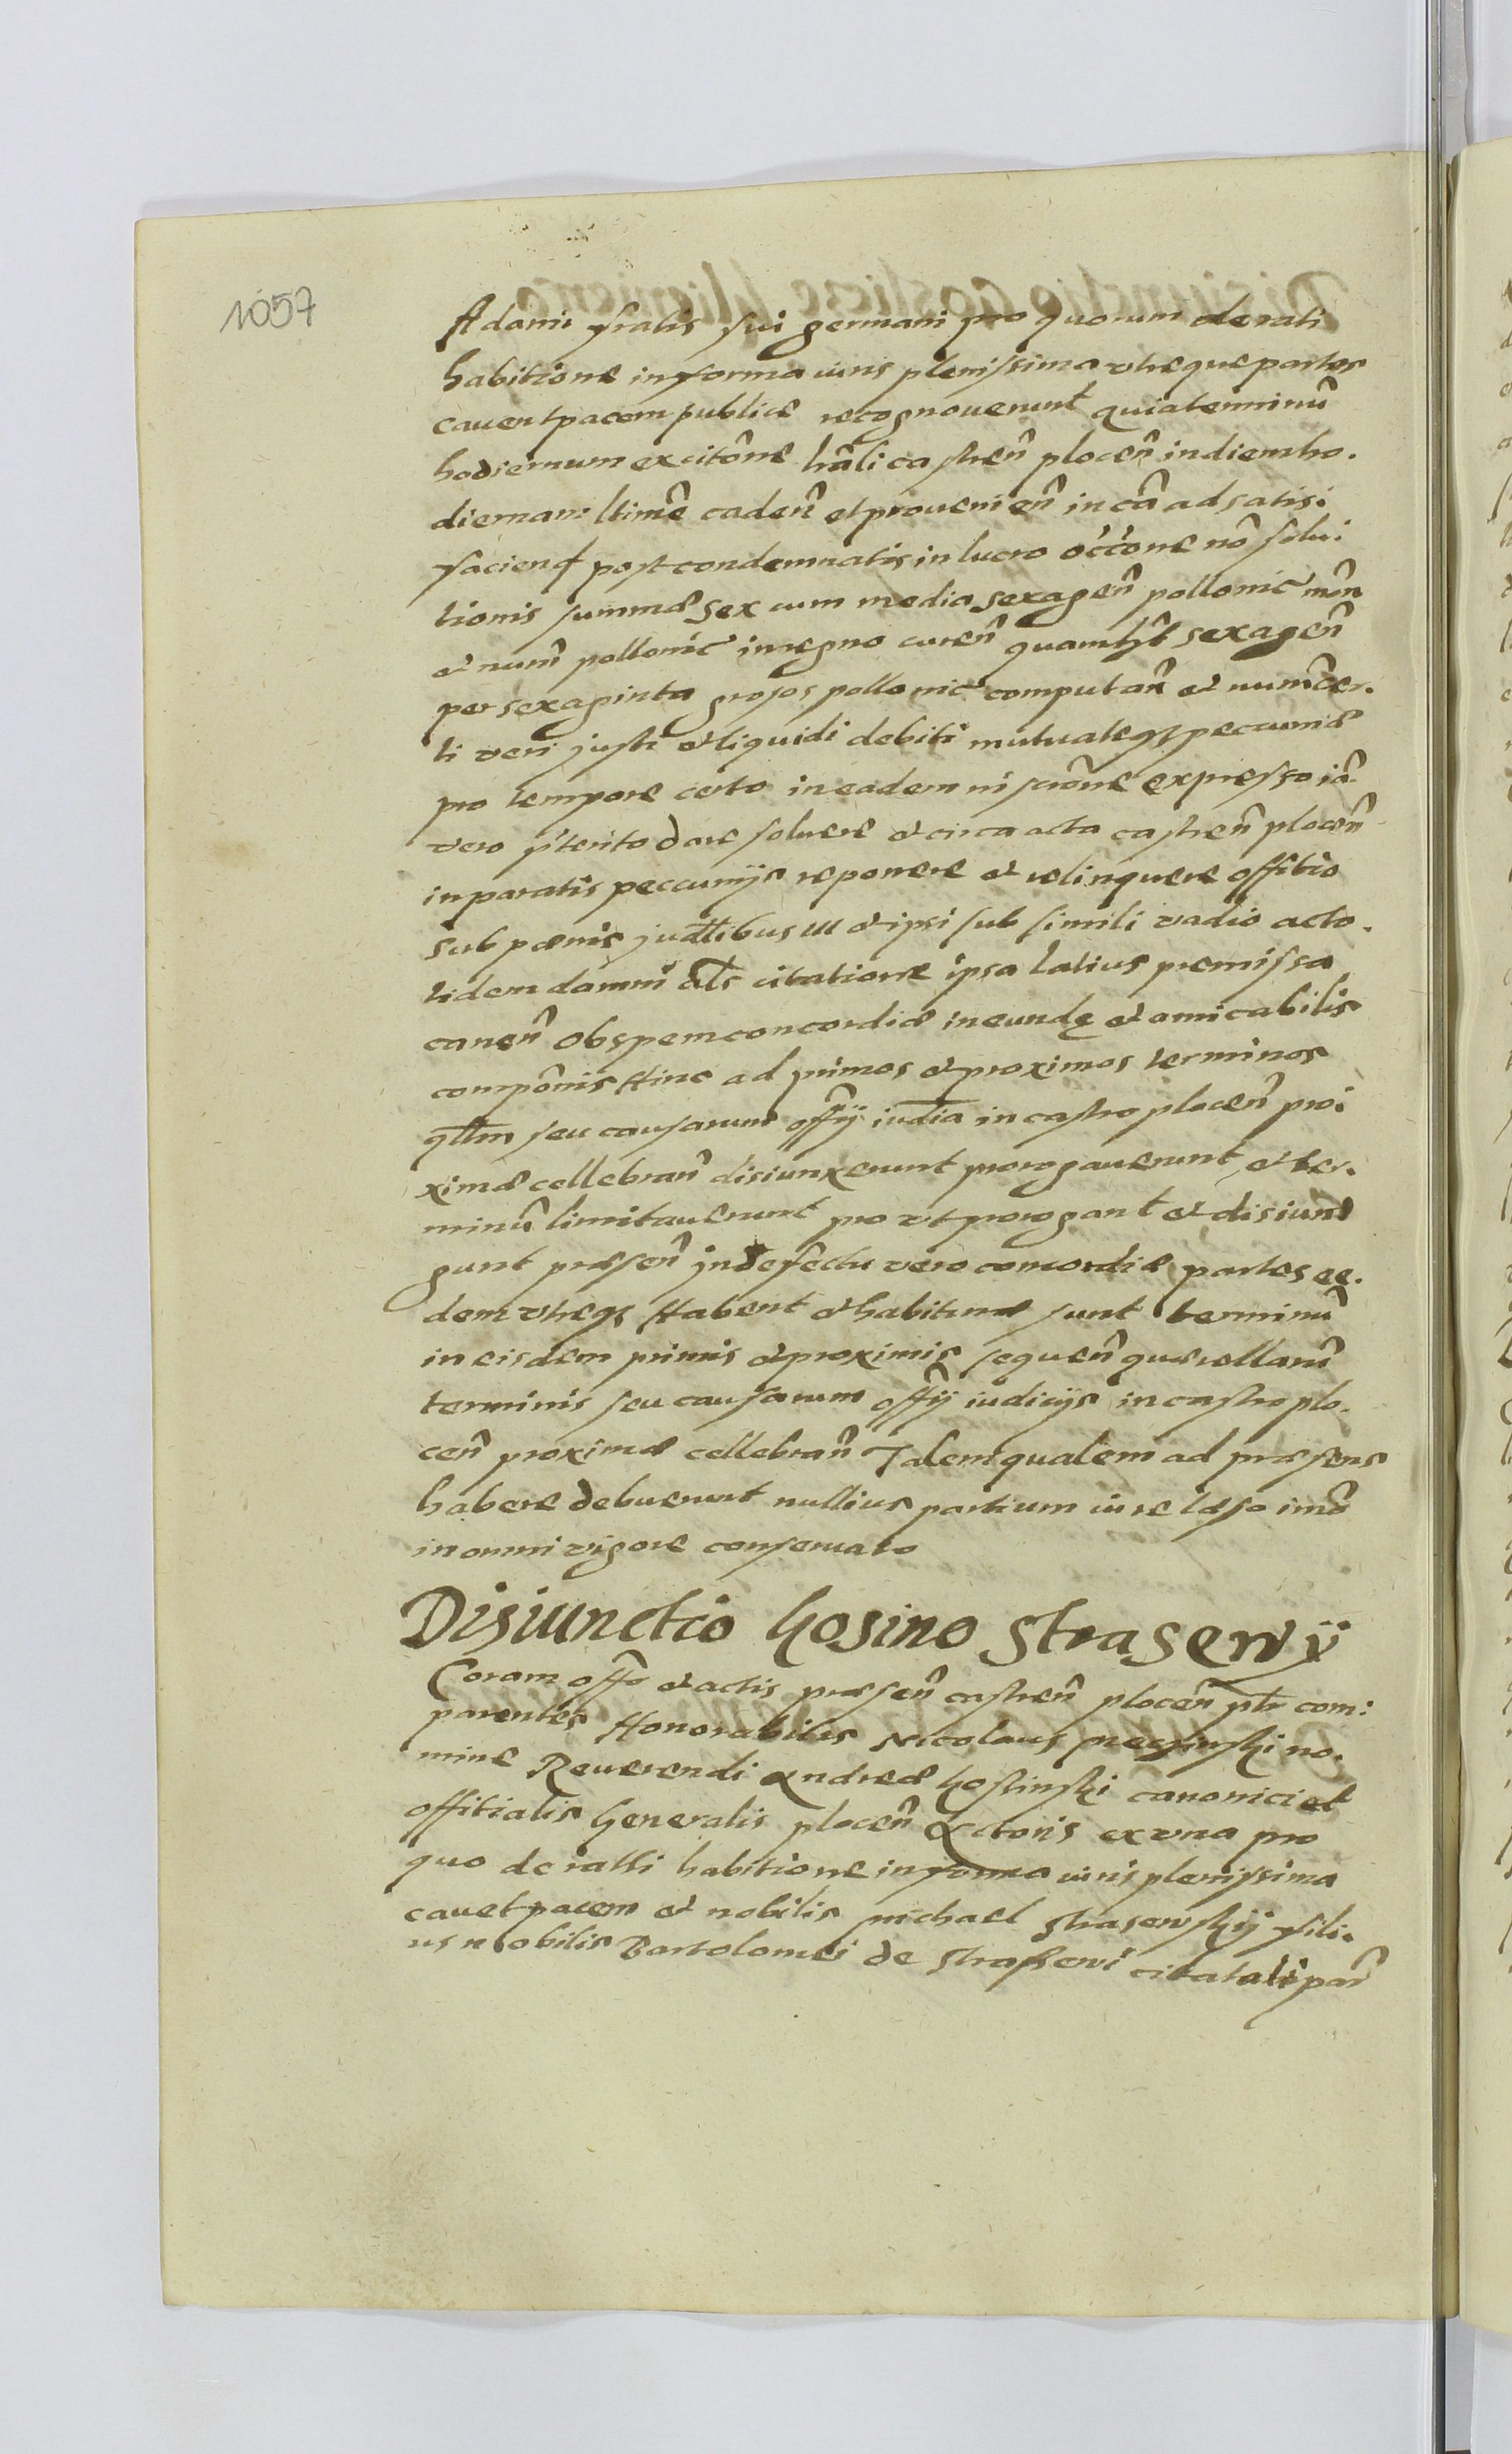 1057
Adami fratis sui germani pro quorum de rati
habitione in forma iuris plenissima utreque partes
cavent pacem publice recognoverunt quia terminũ
hodiernum ex citõne lrãli castreñ ploceñ in diem ho.
diernam ltimẽ cadeñ et provenieñ in cã ad satis:
faciend post condemnatis in lucro occõne nõ solu:
tionis summæ sex cum media sexageñ pollonic moñ
et num̃ pollonic in regno cureñ quamlibt sexageñ
per sexaginta grosos pollonic computañ et numĩ cer.
ti veri justi et liquidi debiti mutuateqз peccuniæ
pro tempore certo in eadem inscriõne expresso iã
vero pterito dare solvere et circa acta castreñ ploceñ
in paratis peccunijs reponere et relinquere offitio
sub pænis judlibus III et ipsi sub simili vadio acto.
tidem damni als citatione ipsa latius premissa
caneñ Ob spem concordiæ ineundę et amicabilis
compõnis Hinc ad primos et proximos terminos
qllm seu causarum offij iudia in castro ploceñ pro:
ximæ cellebrañ disiunxerunt prorogaverunt et ter.
minũ limitaverunt pro ut prorogant et disiun
gunt præseñ in defectu vero concordiæ partes ee.
dem utreqз Habent et habituræ sunt terminũ
in eisdem primis et proximis sequeñ quærellarũ
terminis seu causarum offij iudicijs in castro plo.
ceñ proximæ cellebrañ Talem qualem ad præsens
habere debuerunt nullius partium iure læso imõ
in omni vigore conservato
Disiunctio Gosino Strasewÿ
Coram offo et actis præseñ castreñ ploceñ ptr com:
parentes Honorabilis Nicolaus no.
mine Reverendi Andreæ Gostinski canonici et
offitialis Generalis ploceñ Actoris ex una pro
quo de ratti habitione in forma iuris plenissima
cavet pacem et nobilis Michael Strasewskÿ fili.
us nobilis Bartolomei de Strassewi citatali par